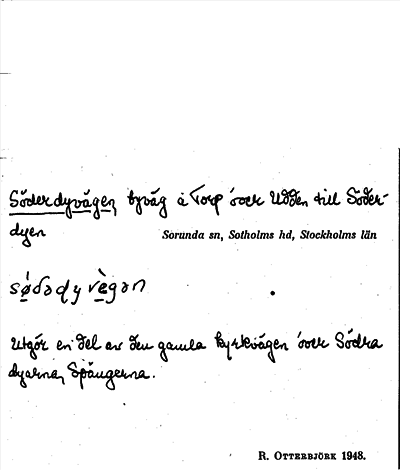 Söderdyvägen, byväg å Torp över Udden till Söder-
dyen
Sorunda sn, Sotholms hd, Stockholms län
Utgör en del av den gamla kyrkvägen över Södra
dyarna, Spångerna.
R. OTTERBJÖRK 1948.